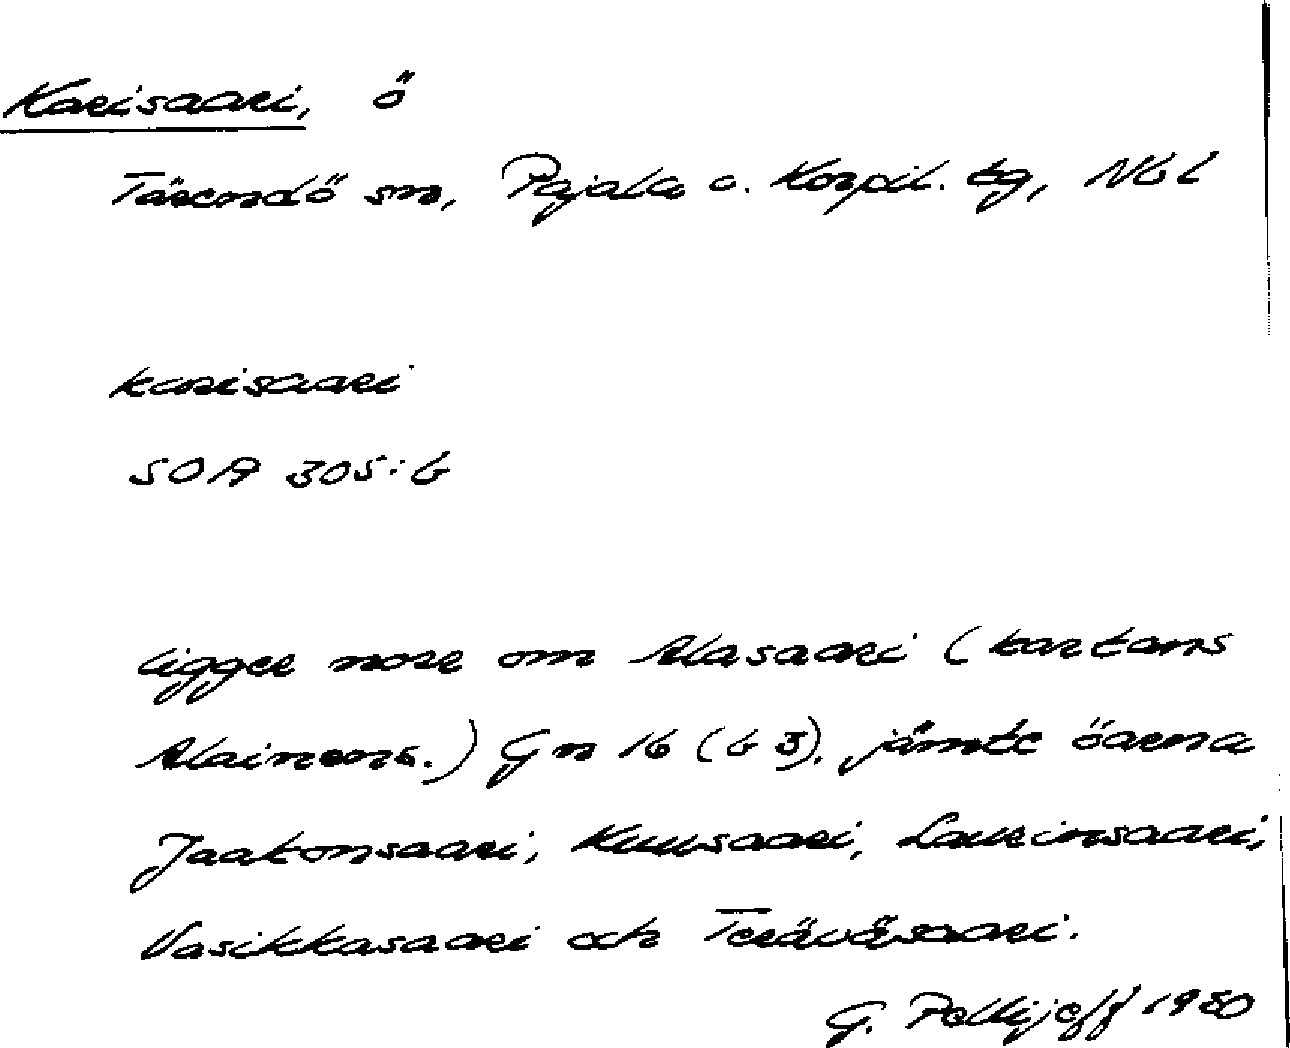 Karisaari, ö
Tärendö sn, Pajala o. Korpil. tg, Nbl
karisaari
SOA 305:6
ligger norr om Alasaari (kartans
Alainens.) Gn 16 (63). jämte öarna
Jaakonsaari, Kuusaari, Laurinsaari,
Vasikkasaari och Terävässaari.
G. Pellijeff 1980